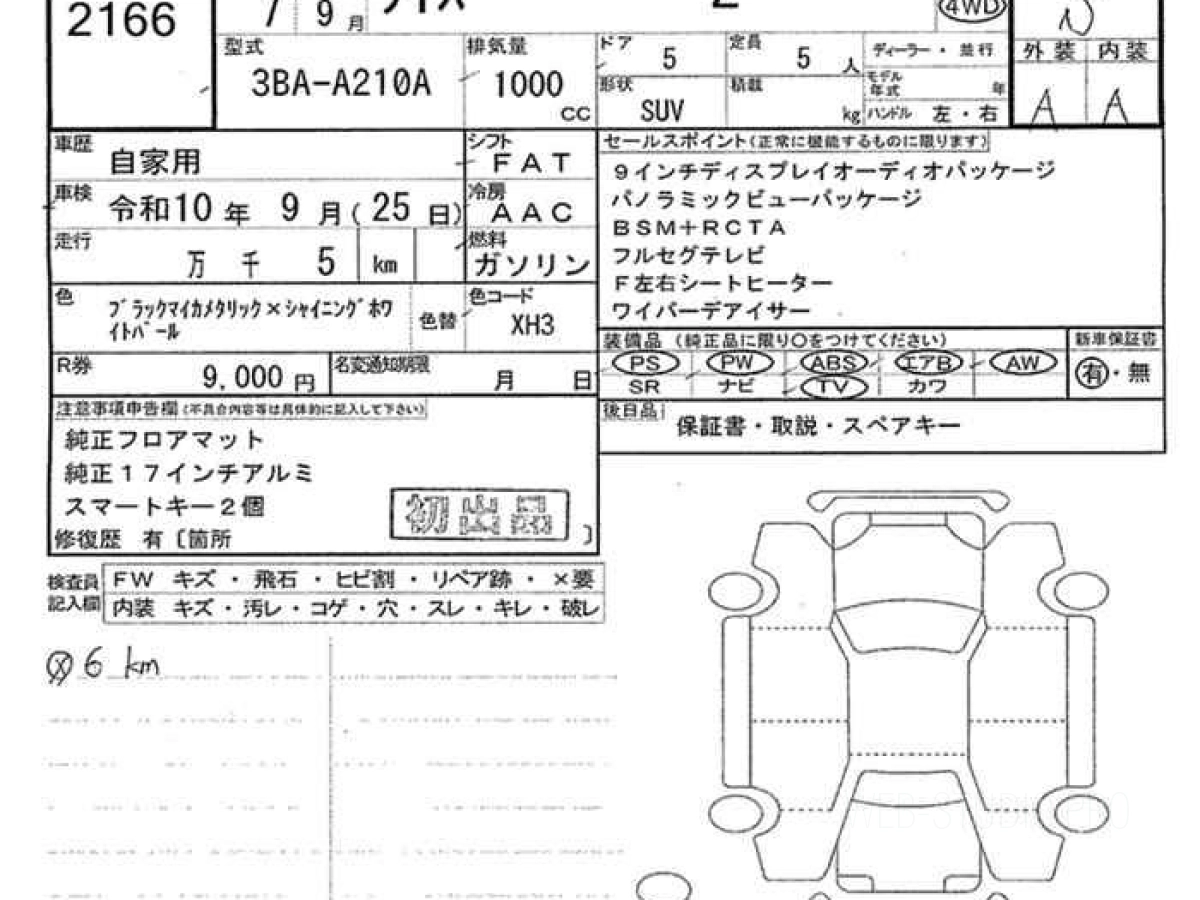 2166
7 9 月
4WD
N
型式
3BA-A210A
排気量
1000
CC
ドア
5
定員
5 人
ディーラー・並行
外装 内装
A A
形状
SUV
積載
kg
モデル年式 年
ハンドル 左・右
車歴
自家用
シフト
FAT
車検
令和10年 9 月( 25 日)
冷房
AAC
走行
万 千 5 km
燃料
ガソリン
色
ブラックマイカメタリック×シャイニングホワ
イトパール
色替
色コード
XH3
R券
9,000 円
名変通知期限
月 日
セールスポイント(正常に機能するものに限ります)
9インチディスプレイオーディオパッケージ
パノラミックビューパッケージ
BSM+RCTA
フルセグテレビ
F左右シートヒーター
ワイパーデアイサー
装備品 (純正品に限り○をつけてください)
PS PW ABS エアB AW
SR ナビ TV カワ
新車保証書
有・無
後日品
保証書・取説・スペアキー
注意事項申告欄(不具合内容等は具体的に記入して下さい)
純正フロアマット
純正17インチアルミ
スマートキー2個
初出品
修復歴 有〔箇所 〕
検査員
記入欄
FW キズ・飛石・ヒビ割・リペア跡・×要
内装 キズ・汚レ・コゲ・穴・スレ・キレ・破レ
ⓧ6 km